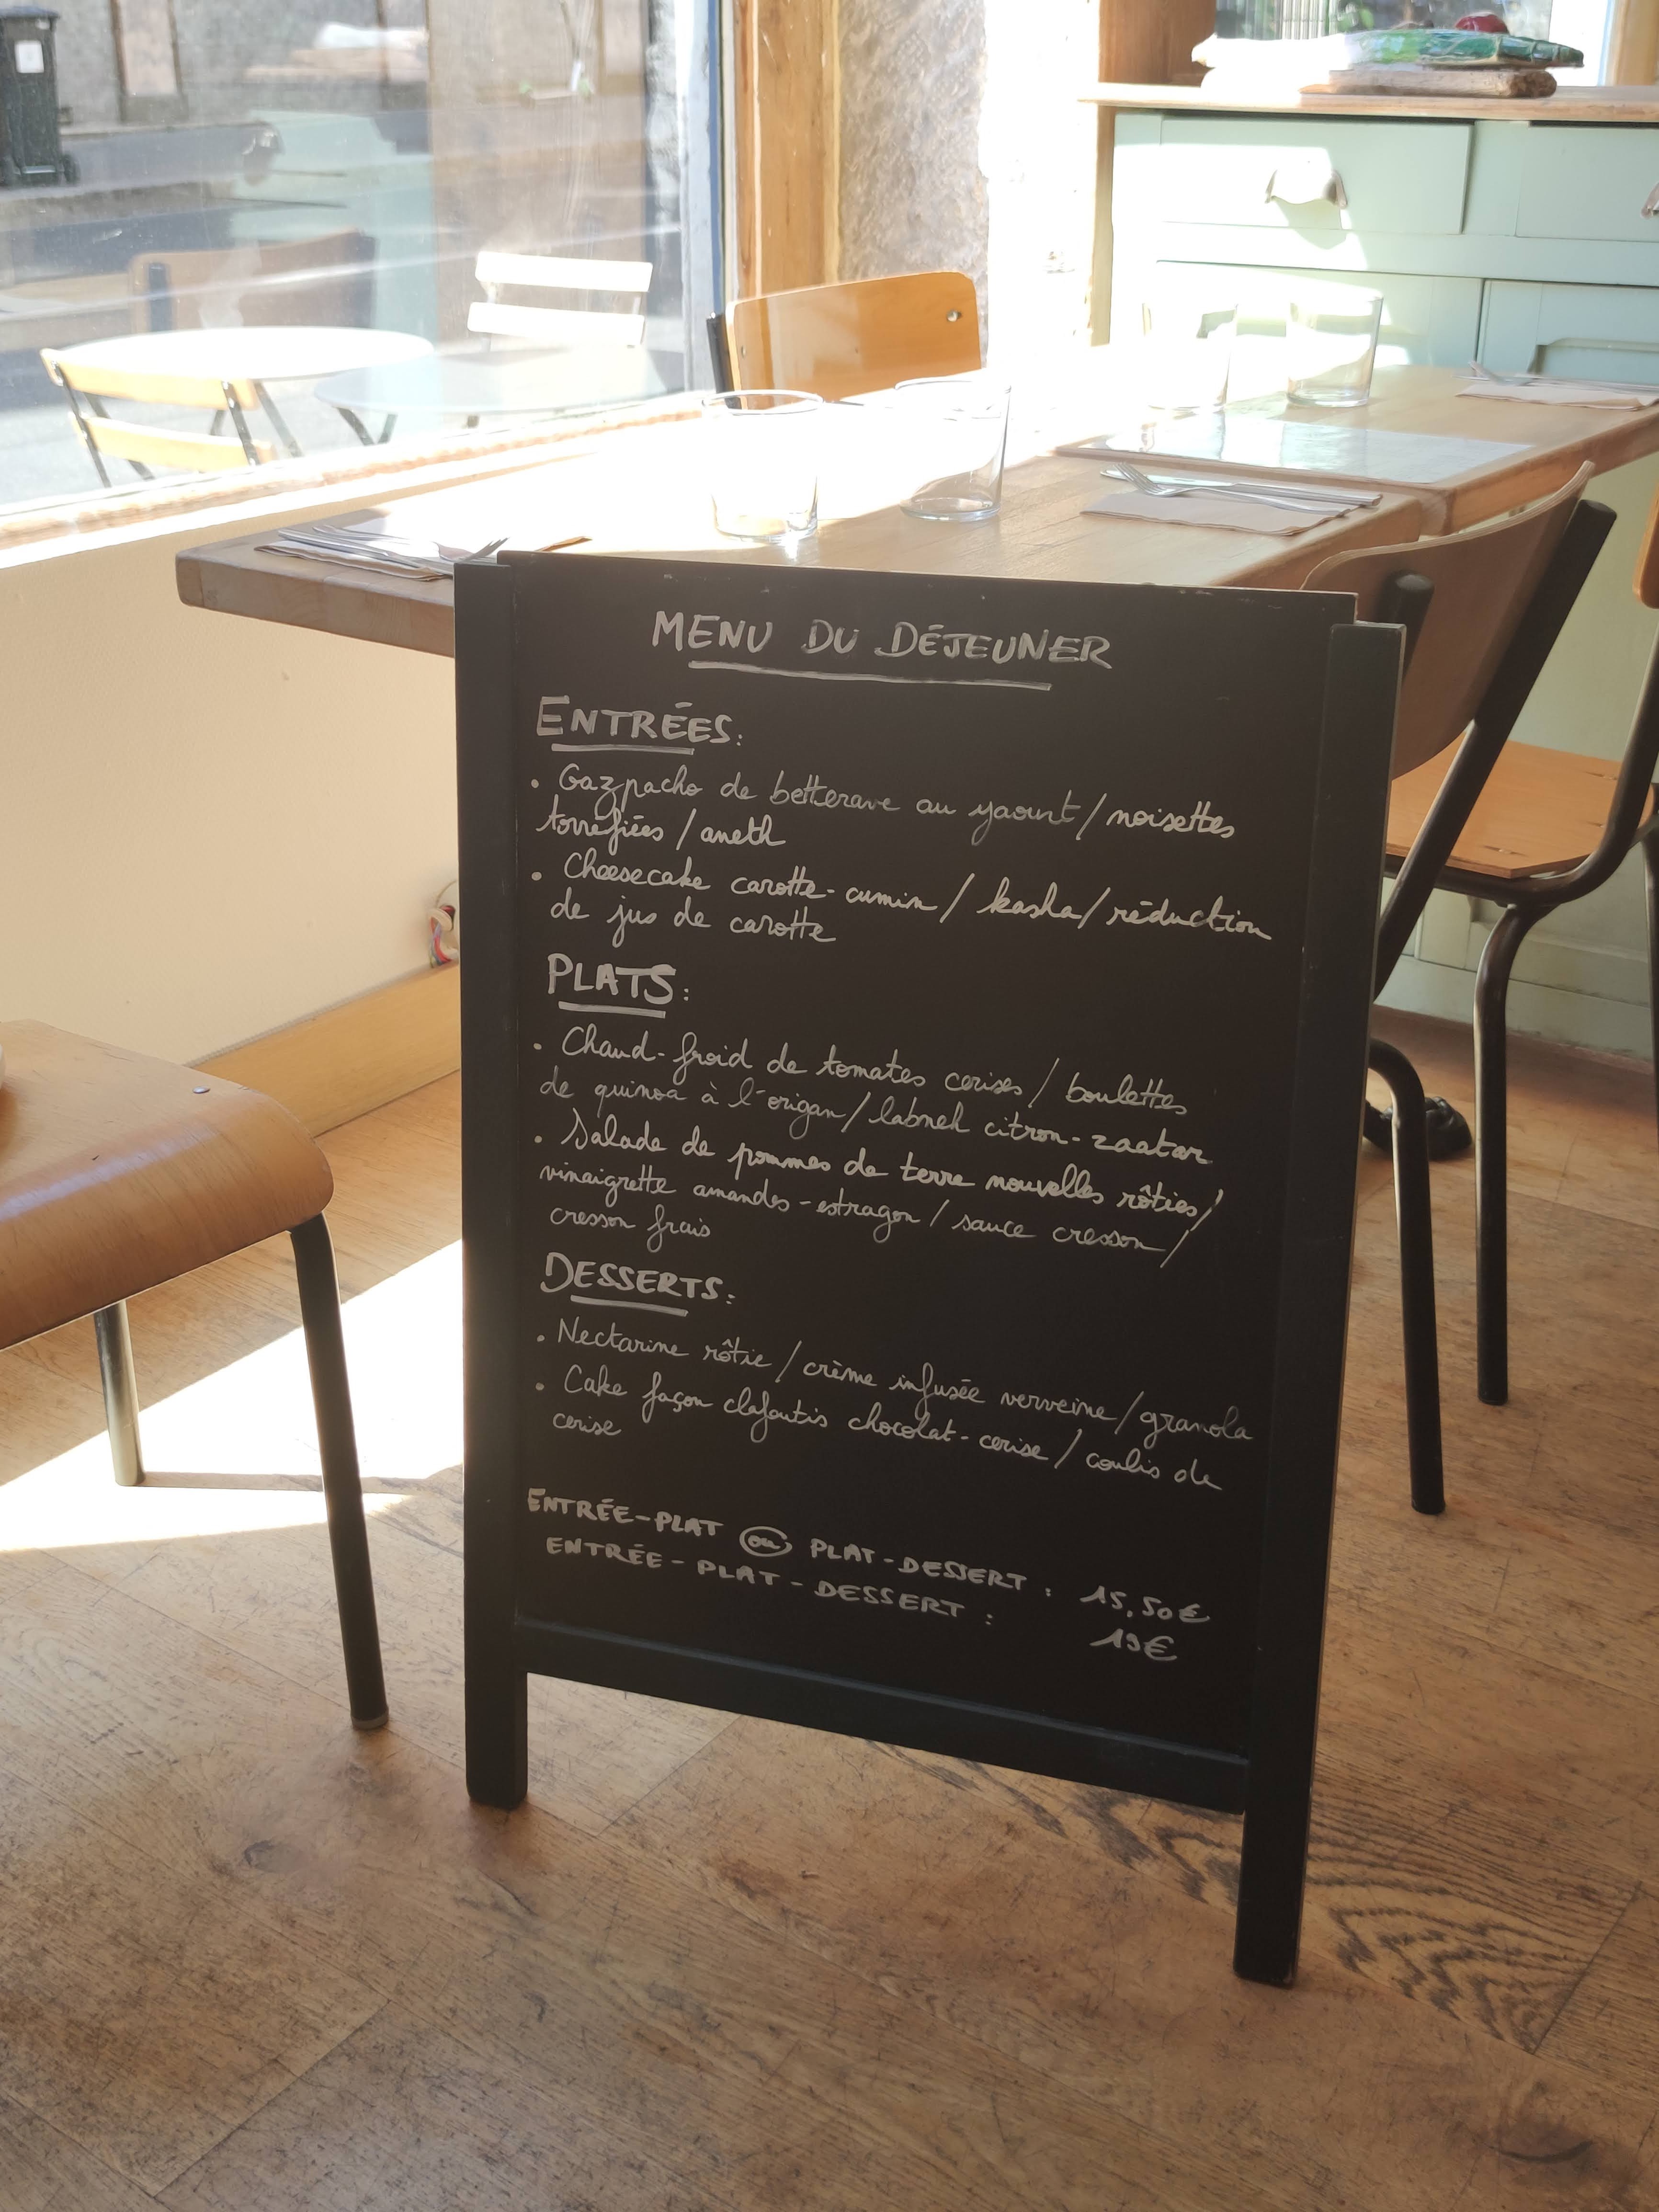 MENU DU DÉJEUNER
ENTRÉES:
• Gazpacho de betterave au yaourt / noisettes
torréfiées / aneth
• Cheesecake carotte-cumin / kasha / réduction
de jus de carotte
PLATS:
• Chaud-froid de tomates cerises / boulettes
de quinoa à l'origan / labneh citron-zaatar
• Salade de pommes de terre nouvelles rôties /
vinaigrette amandes-estragon / sauce cresson /
cresson frais
DESSERTS:
• Nectarine rôtie / crème infusée verveine / granola
• Cake façon clafoutis chocolat-cerise / coulis de
cerise
ENTRÉE-PLAT ou PLAT-DESSERT : 15,50€
ENTRÉE-PLAT-DESSERT : 19€